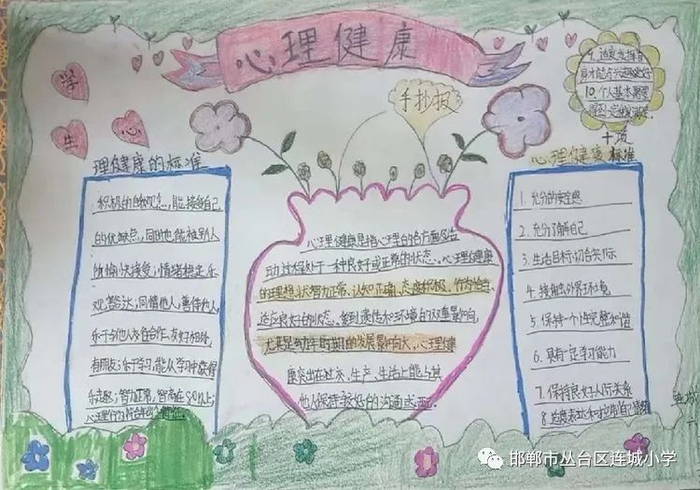 心理健康
手抄报
学
生
心
理健康的标准
积极的自我观念，能接纳自己
的优缺点，同时也能被别人
愉快接受；情绪稳定，乐
观豁达，同情他人，善待他人，
乐于与他人合作，友好相处，
有朋友；乐于学习，能从学习中获得
乐趣；智力正常，智商在80以上；
心理行为符合年龄
心理健康是指心理的各方面及活
动过程处于一种良好或正常的状态。心理健康
的理想状态智力正常、认知正确、态度积极、行为恰当、
适应良好的状态。受到遗传和环境的双重影响，
尤其是幼年时期的发展影响大，心理健
康突出在社交、生产、生活上能与其
他人保持较好的沟通或
9.适度发挥
10.个人基本需要
十项
心理健康标准
1.充分的安全感
2.充分了解自己
3.生活目标切合实际
4.接触外界环境
5.保持个性完整和谐
6.具有一定学习能力
7.保持良好人际关系
8适度表达和控制自己情绪
邯郸市丛台区连城小学